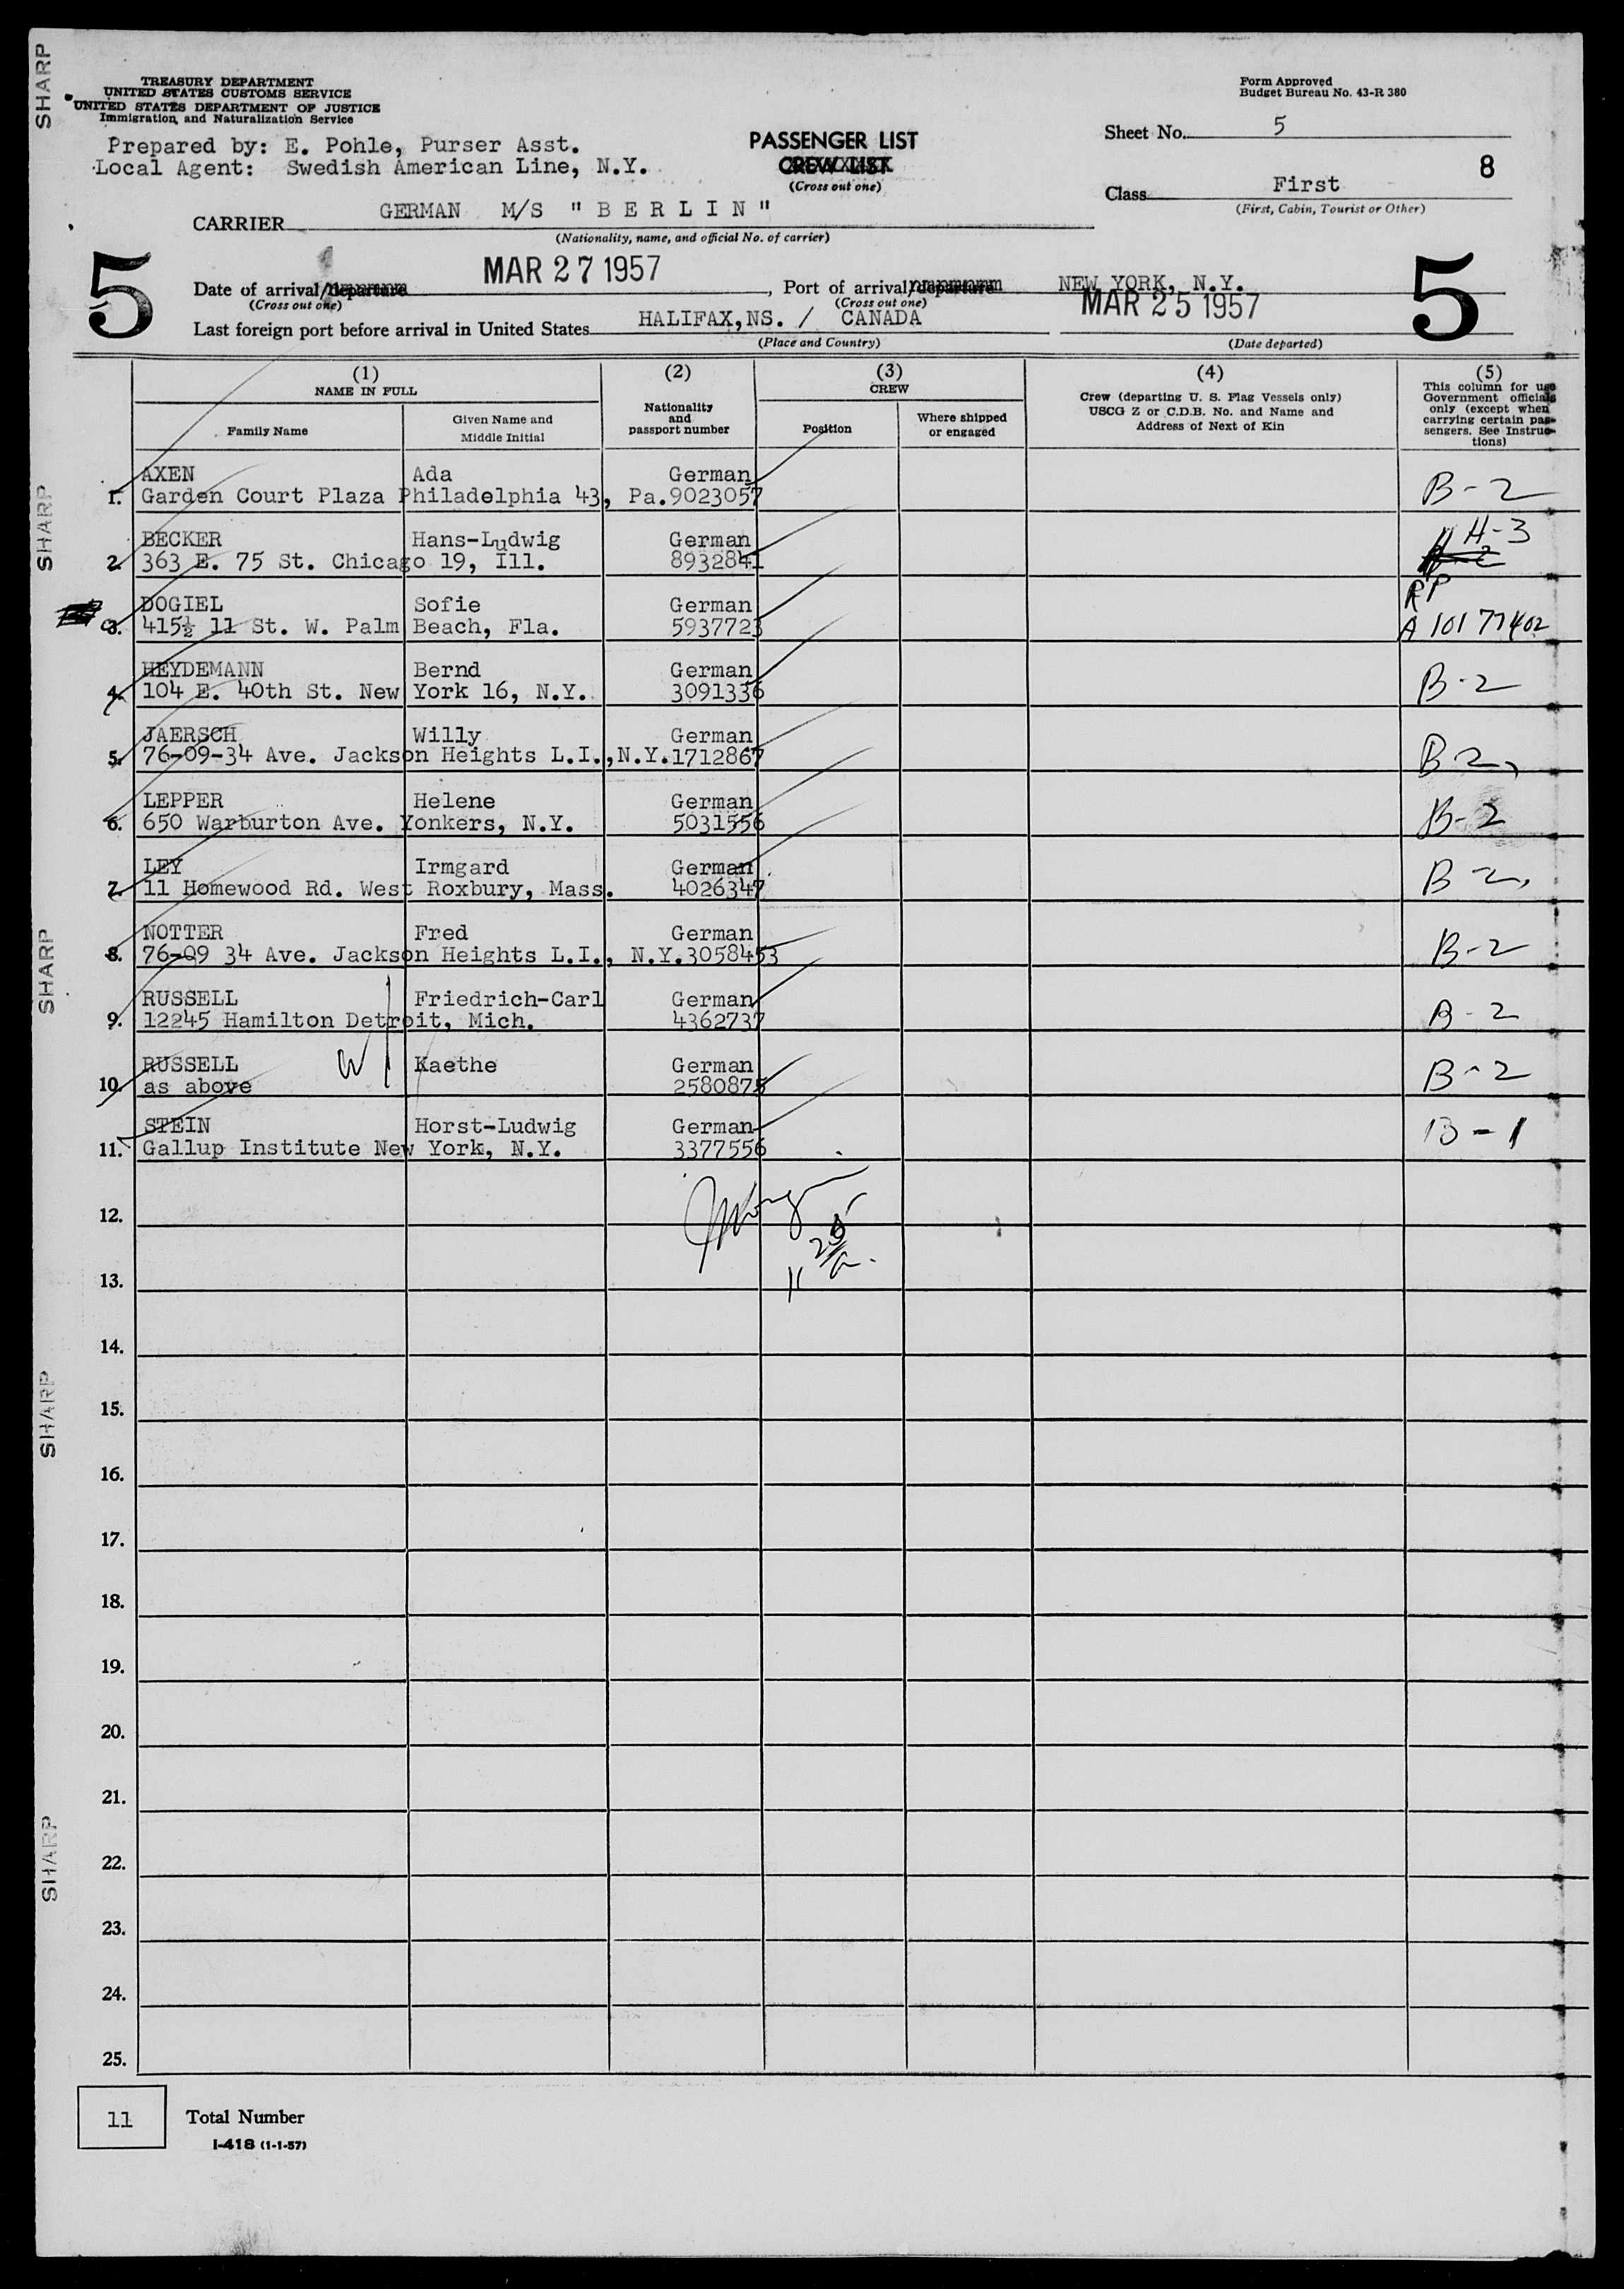 SHARP
TREASURY DEPARTMENT
UNITED STATES CUSTOMS SERVICE
UNITED STATES DEPARTMENT OF JUSTICE
Immigration and Naturalization Service
Form Approved
Budget Bureau No. 43-R 380
Prepared by: E. Pohle, Purser Asst.
Local Agent: Swedish American Line, N.Y.
PASSENGER LIST
CREW LIST
(Cross out one)
Sheet No. 5
8
Class First
(First, Cabin, Tourist or Other)
CARRIER GERMAN M/S "BERLIN"
(Nationality, name, and official No. of carrier)
5
Date of arrival/departure MAR 27 1957, Port of arrival/departure NEW YORK, N.Y.
(Cross out one) (Cross out one)
5
Last foreign port before arrival in United States HALIFAX,NS. / CANADA MAR 25 1957
(Place and Country) (Date departed)
(1) (2) (3) (4) (5)
NAME IN FULL
Family Name
Given Name and
Middle Initial
Nationality
and
passport number
CREW
Position
Where shipped
or engaged
Crew (departing U. S. Flag Vessels only)
USCG Z or C.D.B. No. and Name and
Address of Next of Kin
This column for use
Government officials
only (except when
carrying certain pas-
sengers. See Instruc-
tions)
AXEN Ada German
1. Garden Court Plaza Philadelphia 43, Pa.9023057 B-2
BECKER Hans-Ludwig German H-3
2. 363 E. 75 St. Chicago 19, Ill. 8932841
DOGIEL Sofie German RP
3. 415½ 11 St. W. Palm Beach, Fla. 5937723 A 10177402
HEYDEMANN Bernd German
4. 104 E. 40th St. New York 16, N.Y. 3091336 B-2
JAERSCH Willy German
5. 76-09-34 Ave. Jackson Heights L.I.,N.Y.1712867 B-2
LEPPER Helene German
6. 650 Warburton Ave. Yonkers, N.Y. 5031556 B-2
LEY Irmgard German
7. 11 Homewood Rd. West Roxbury, Mass. 4026347 B-2
NOTTER Fred German
8. 76-09 34 Ave. Jackson Heights L.I., N.Y.3058453 B-2
RUSSELL Friedrich-Carl German
9. 12245 Hamilton Detroit, Mich. 4362737 B-2
RUSSELL W/ Kaethe German
10. as above 2580875 B-2
STEIN Horst-Ludwig German
11. Gallup Institute New York, N.Y. 3377556 B-1
12.
13.
14.
15.
16.
17.
18.
19.
20.
21.
22.
23.
24.
25.
11 Total Number
I-418 (1-1-57)
SHARP
SHARP
SHARP
SHARP